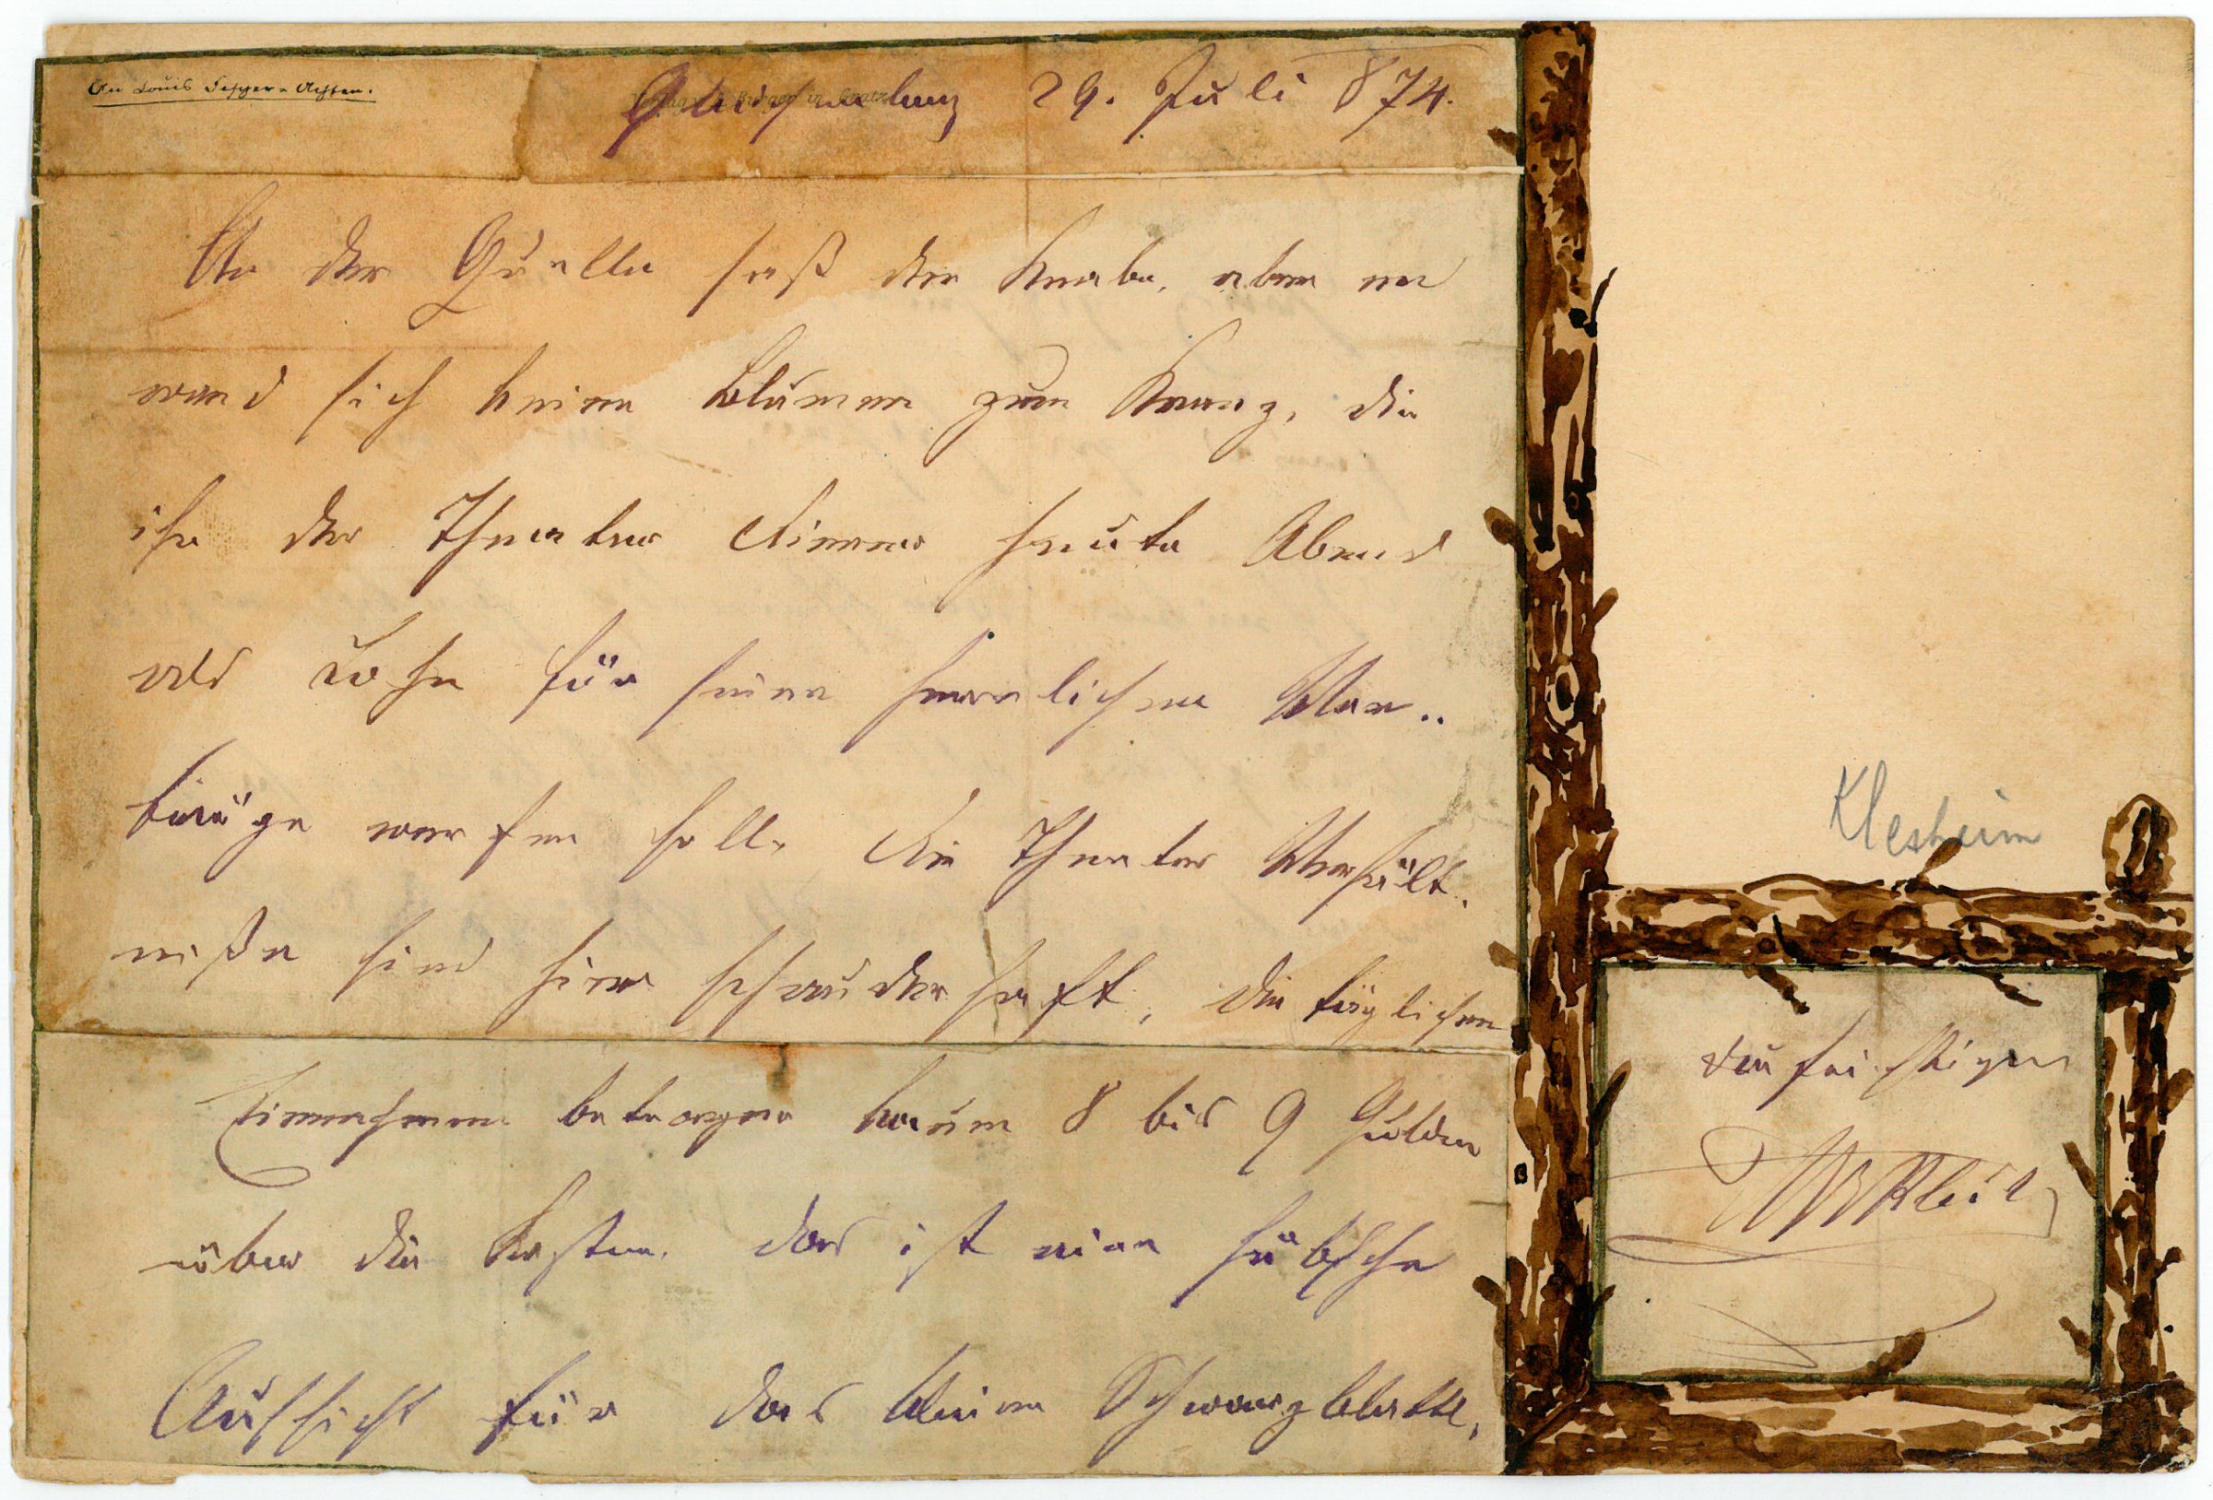 An Louis
29. Juli 874.
An der Quelle saß der Knabe, aber er
wand sich keine Blumen zum Kranz, die
ihm der Theater Diener heute Abend
als Lohn für seine herrlichen Vor..
träge werfen soll. Die Theater Verhält.
niße sind hier schauderhaft, die täglichen
Einnahmen betragen kaum 8 bis 9 Gulden
über die Kosten. das ist eine hübsche
Aussicht für das kleine Schwarzblattl,
Klesheim